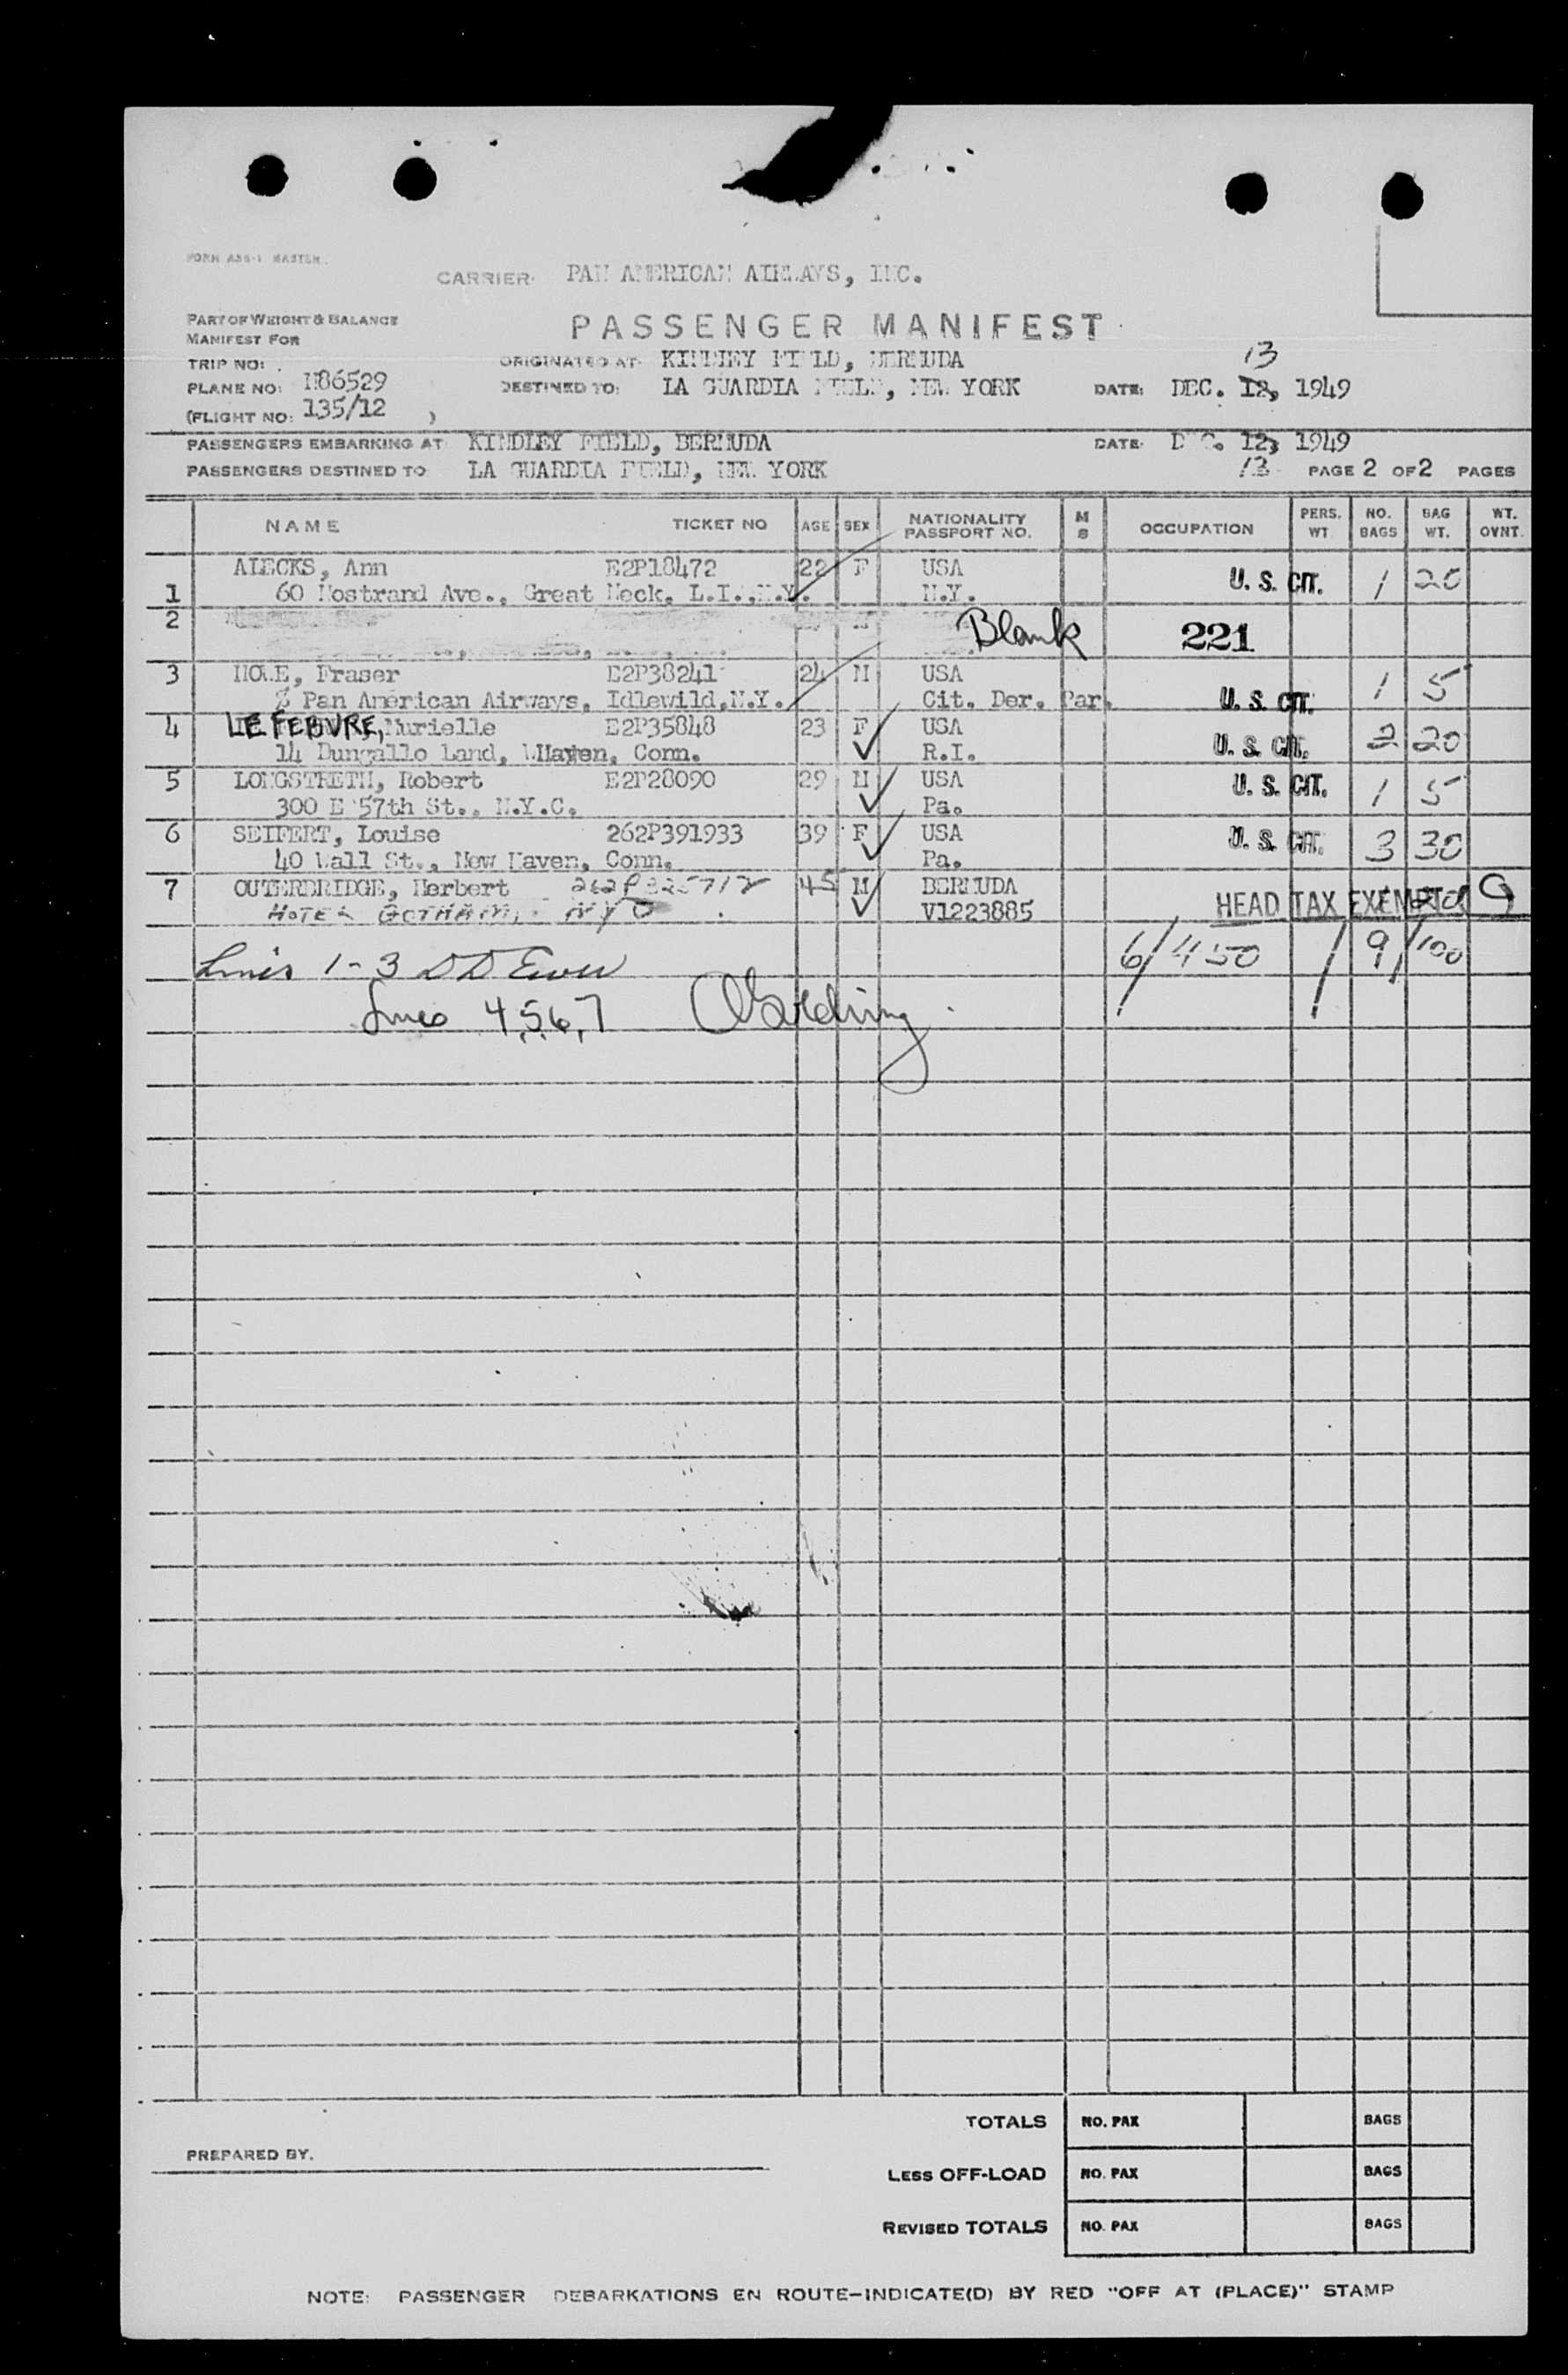 FORM ASG-1 MASTER
CARRIER: PAN AMERICAN AIRWAYS, INC.
PART OF WEIGHT & BALANCE
MANIFEST FOR
PASSENGER MANIFEST
TRIP NO:
ORIGINATED AT: KINDLEY FIELD, BERMUDA
13
PLANE NO: N86529
DESTINED TO: LA GUARDIA FIELD, NEW YORK DATE: DEC. 12, 1949
(FLIGHT NO: 135/12 )
PASSENGERS EMBARKING AT KINDLEY FIELD, BERMUDA DATE: DEC. 12, 1949
PASSENGERS DESTINED TO LA GUARDIA FIELD, NEW YORK 13 PAGE 2 OF 2 PAGES
NAME TICKET NO AGE SEX NATIONALITY PASSPORT NO. M S OCCUPATION PERS. WT NO. BAGS BAG WT. WT. OVNT.
ALECKS, Ann E2P18472 22 F USA
1 60 Nostrand Ave., Great Neck, L.I., N.Y. N.Y. U. S. CIT. 1 20
2 Blank 221
3 HOLE, Fraser E2P38241 24 M USA
% Pan American Airways, Idlewild, N.Y. Cit. Der. Par. U. S. CIT. 1 5
4 LEFEBVRE, Murielle E2P35848 23 F USA
14 Dungallo Land, WHaven, Conn. R.I. U. S. CIT. 2 20
5 LONGSTRETH, Robert E2P28090 29 M USA
300 E 57th St., N.Y.C. Pa. U. S. CIT. 1 5
6 SEIFERT, Louise 262P391933 39 F USA
40 Wall St., New Haven, Conn. Pa. U. S. CIT. 3 30
7 OUTERBRIDGE, Herbert 262P325712 45 M BERMUDA
HOTEL GOTHAM, NYC V1223885 HEAD TAX EXEMPT
Lines 1-3 6/450 9/100
Lines 4,5,6,7
TOTALS NO. PAX BAGS
PREPARED BY.
LESS OFF-LOAD NO. PAX BAGS
REVISED TOTALS NO. PAX BAGS
NOTE: PASSENGER DEBARKATIONS EN ROUTE—INDICATE(D) BY RED "OFF AT (PLACE)" STAMP